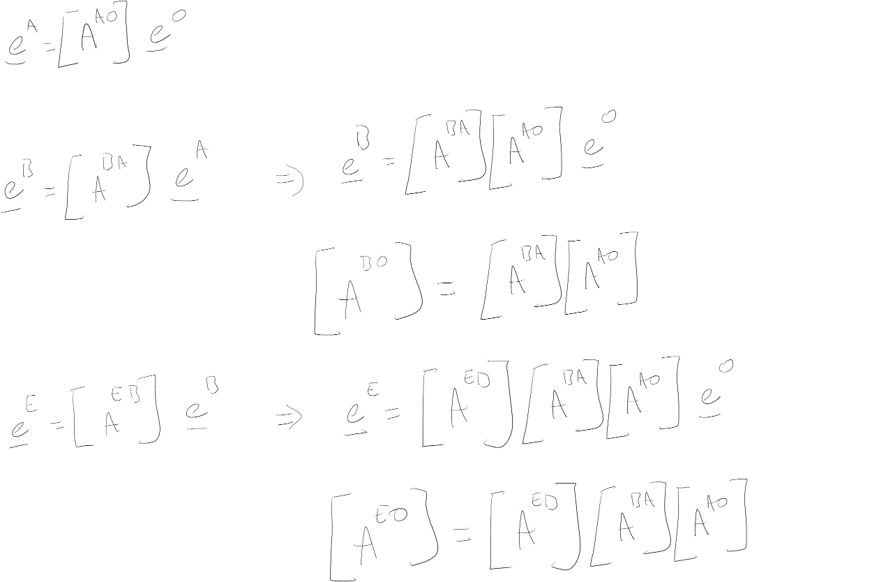 e^A = [A^{AO}] e^O
e^B = [A^{BA}] e^A ⇒ e^B = [A^{BA}][A^{AO}] e^O
[A^{BO}] = [A^{BA}][A^{AO}]
e^E = [A^{EB}] e^B ⇒ e^E = [A^{EB}][A^{BA}][A^{AO}] e^O
[A^{EO}] = [A^{EB}][A^{BA}][A^{AO}]